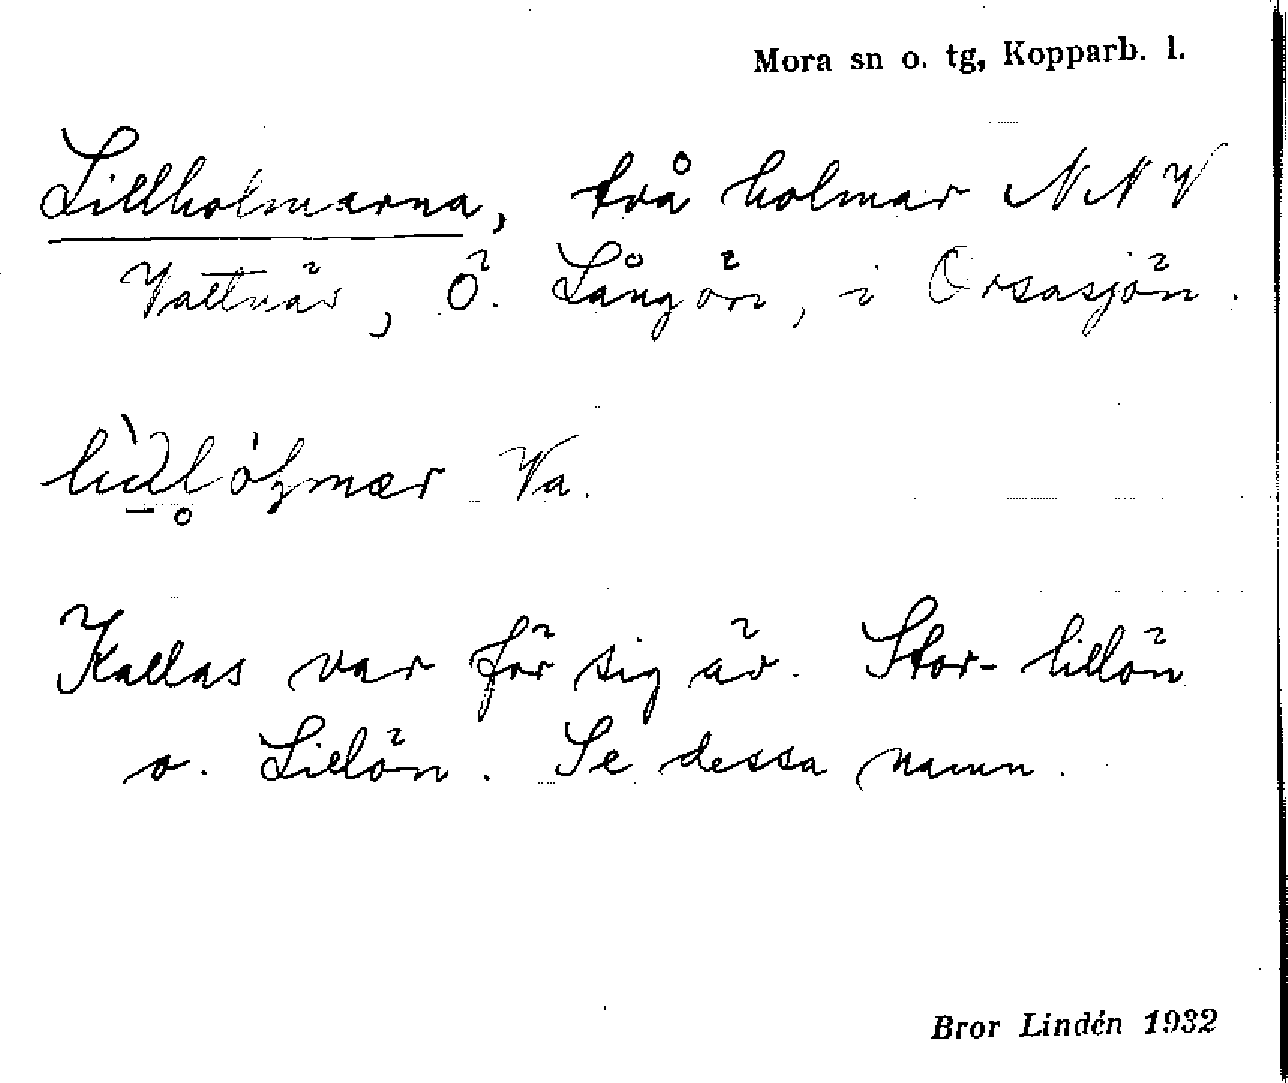 Mora sn o. tg, Kopparb. l.
Lillholmarna, två holmar NNV
Vattnär, Ö. Långön, i Orsasjön.
Va.
Kallas var för sig äv. Stor-lillön
o. Lillön. Se dessa namn.
Bror Lindén 1932